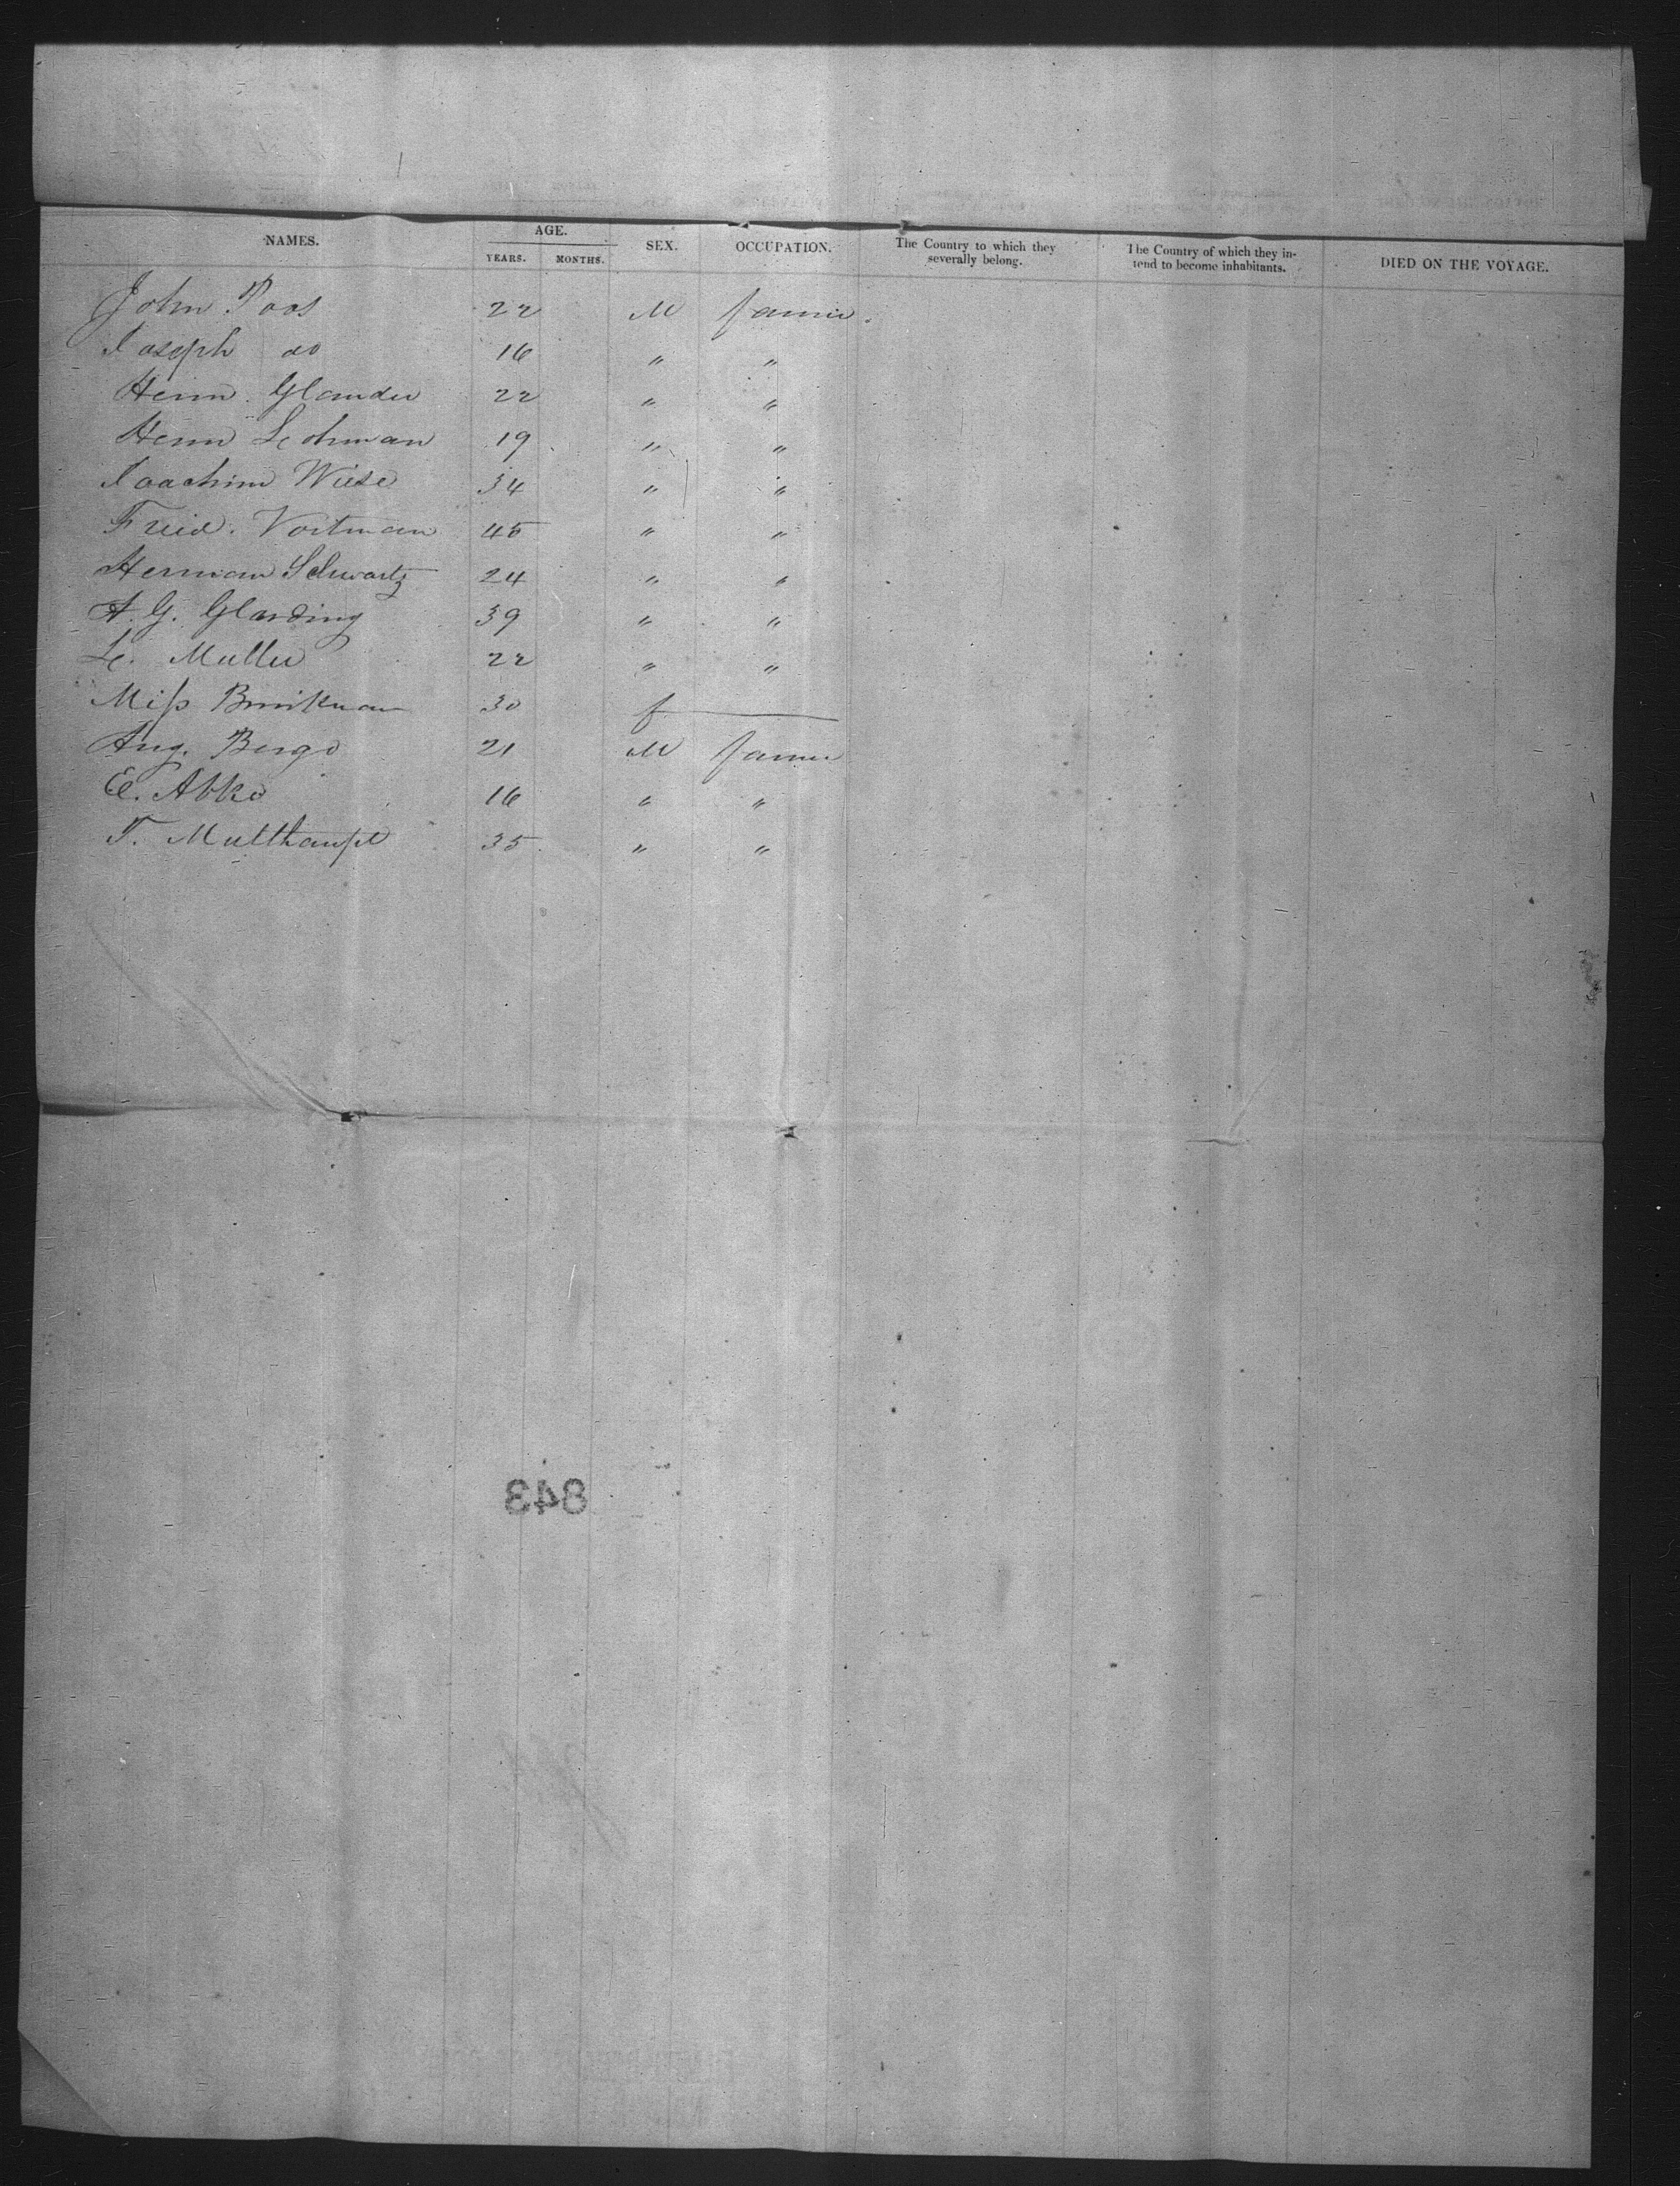 NAMES. AGE. YEARS. MONTHS. SEX. OCCUPATION. The Country to which they severally belong. The Country of which they intend to become inhabitants. DIED ON THE VOYAGE.
John Poos 22 M farmer.
Joseph do 16 " "
Herm. Glander 22 " "
Herm Lehman 19 " "
Joachim Wiese 34 " "
Fried. Vortman 45 " "
Herman Schwartz 24 " "
A. G. Glarding 39 " "
L. Muller 22 " "
Miss Brinkman 30 f
Aug. Berge 21 M farmer
E. Abke 16 " "
T. Multhaupt 35 " "
843